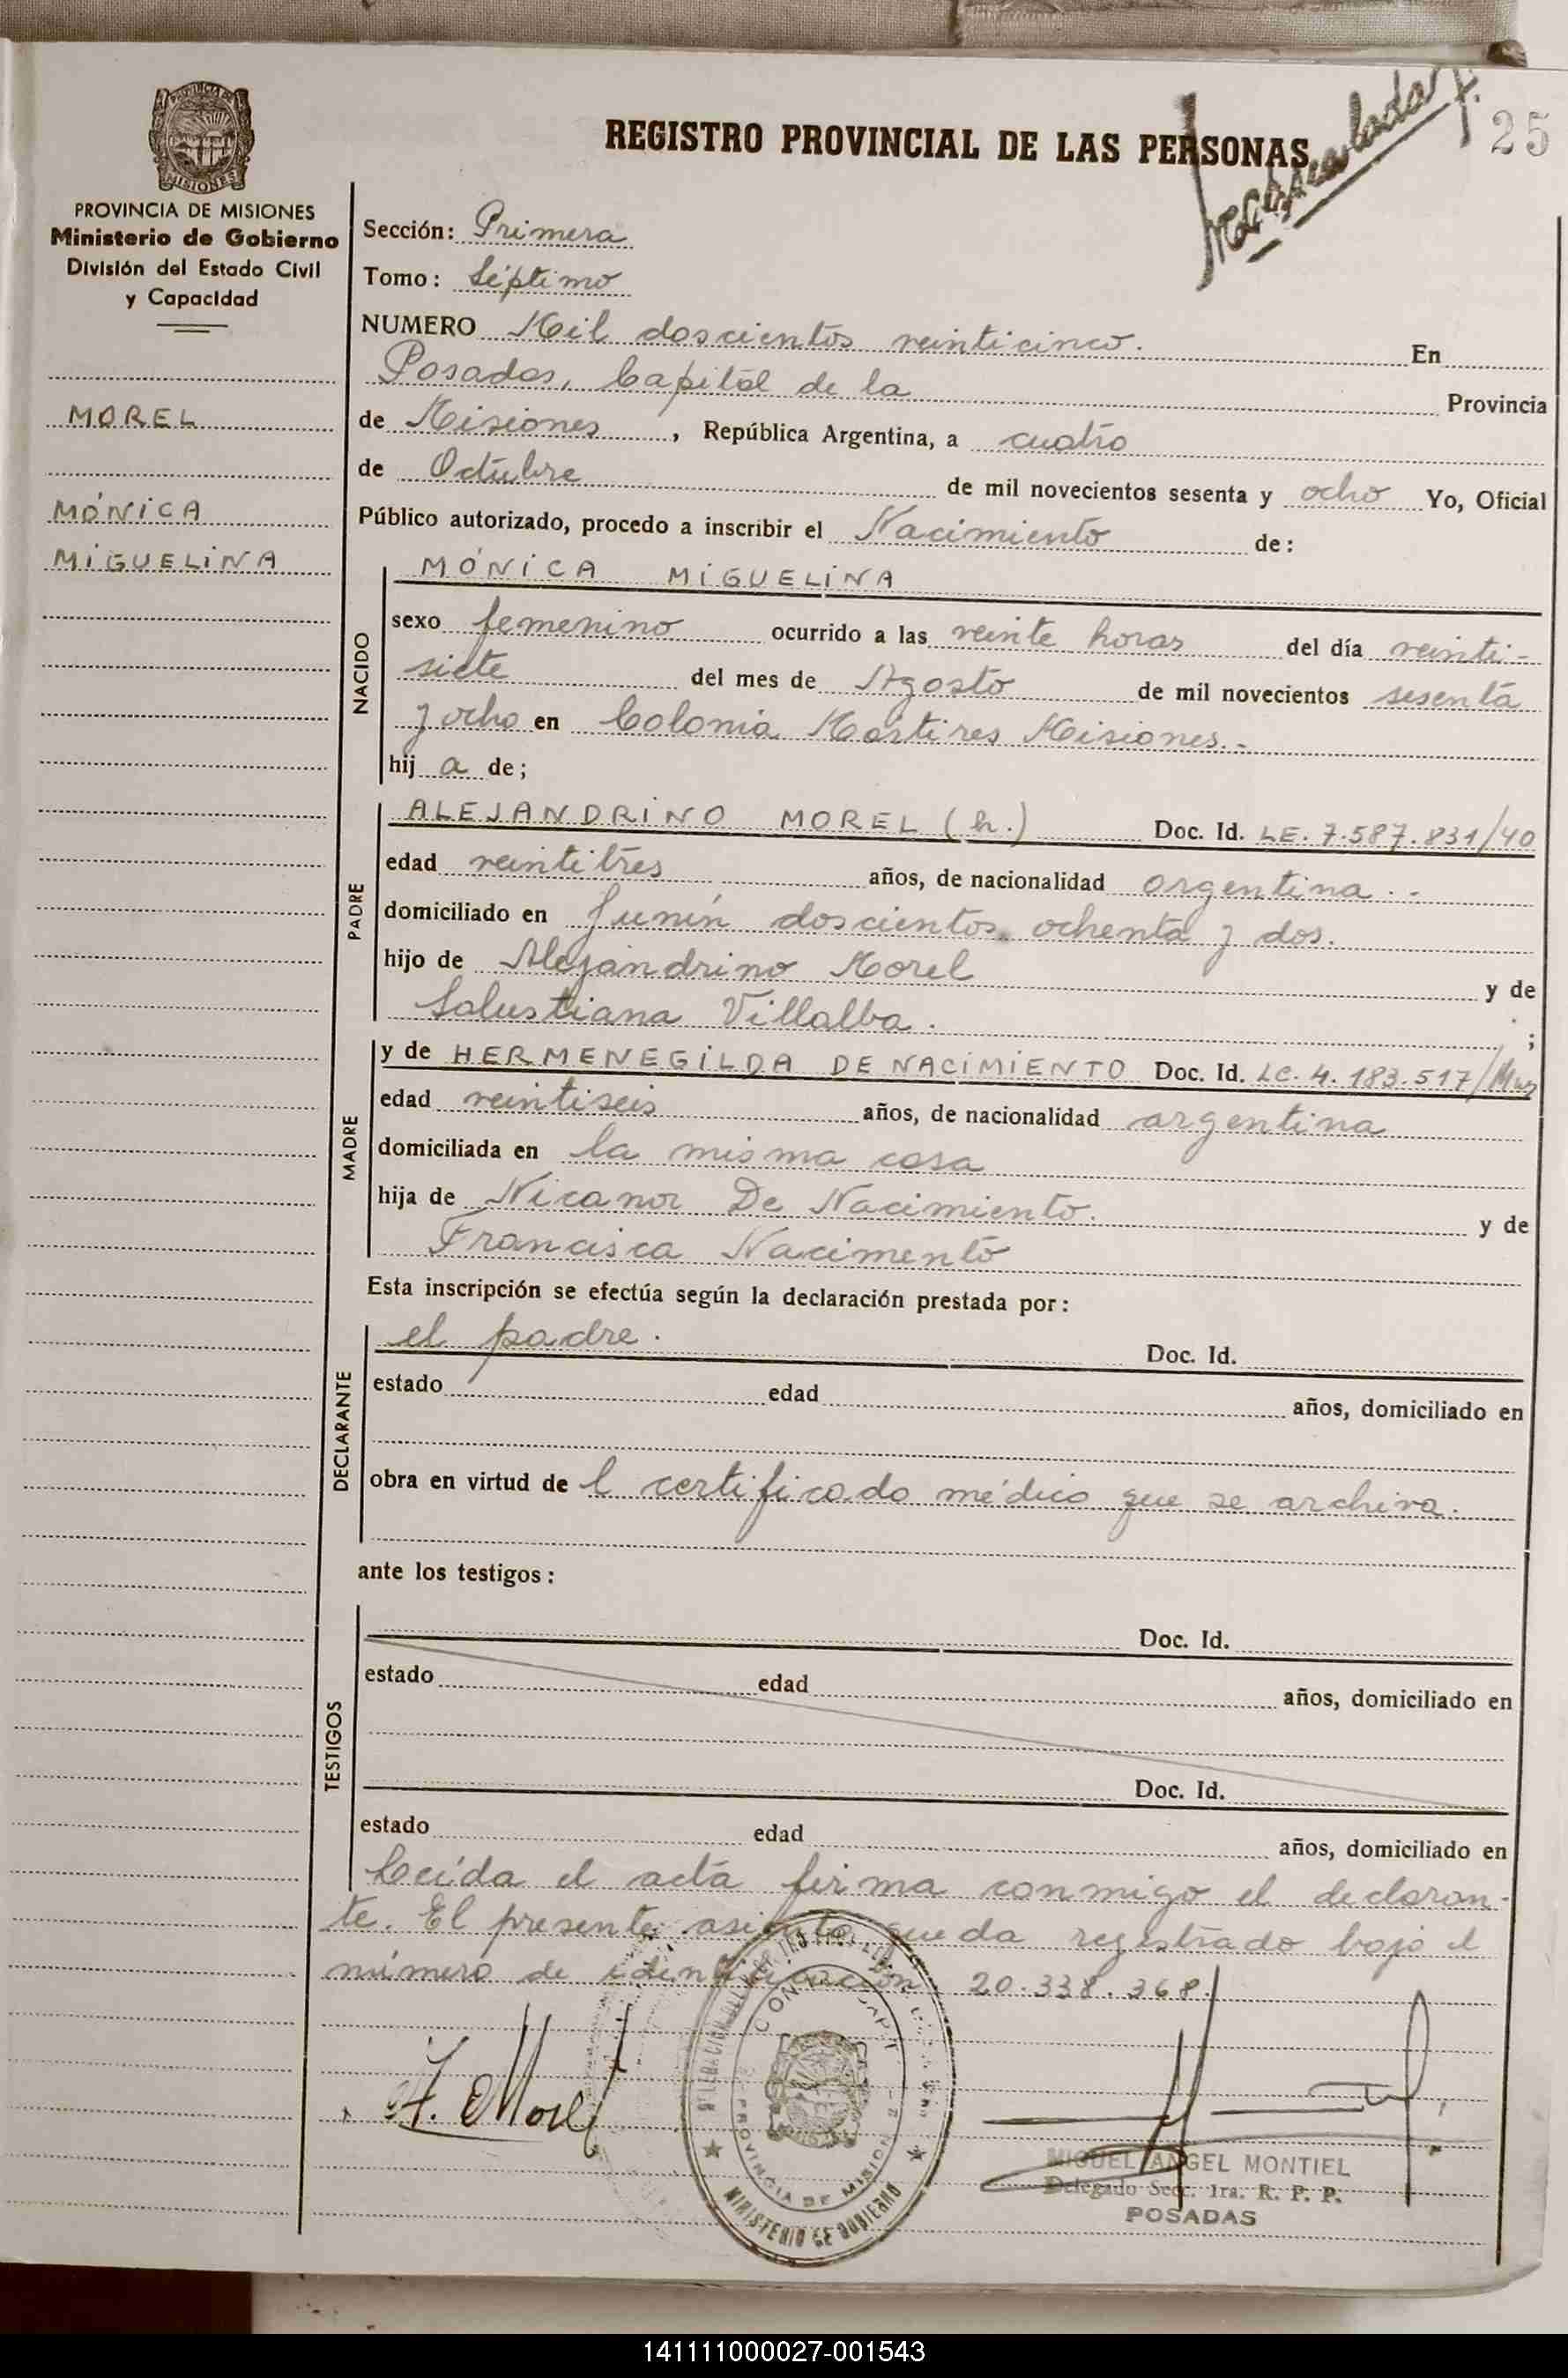 REGISTRO PROVINCIAL DE LAS PERSONAS
25
PROVINCIA DE MISIONES
Ministerio de Gobierno
División del Estado Civil
y Capacidad
MOREL
MÓNICA
MIGUELINA
Sección: Primera
Tomo: Séptimo
NUMERO Mil doscientos veinticinco. En
Posadas, Capital de la Provincia
de Misiones, República Argentina, a cuatro
de Octubre de mil novecientos sesenta y ocho Yo, Oficial
Público autorizado, procedo a inscribir el Nacimiento de:
NACIDO
MÓNICA MIGUELINA
sexo femenino ocurrido a las veinte horas del día veinti-
siete del mes de Agosto de mil novecientos sesenta
y ocho en Colonia Mártires Misiones.-
hij a de;
PADRE
ALEJANDRINO MOREL (h.) Doc. Id. LE. 7.587.831/40
edad veintitrés años, de nacionalidad argentina.-
domiciliado en Junín doscientos ochenta y dos.
hijo de Alejandrino Morel y de
Salustiana Villalba. ;
MADRE
y de HERMENEGILDA DE NACIMIENTO Doc. Id. LC. 4.183.517/Mns
edad veintiseis años, de nacionalidad argentina
domiciliada en la misma casa
hija de Nicanor De Nacimiento. y de
Francisca Nacimento
Esta inscripción se efectúa según la declaración prestada por:
DECLARANTE
el padre. Doc. Id.
estado edad años, domiciliado en
obra en virtud de l certificado médico que se archiva.
ante los testigos:
TESTIGOS
Doc. Id.
estado edad años, domiciliado en
Doc. Id.
estado edad años, domiciliado en
Leída el acta firma conmigo el declaran-
te. El presente asiento queda registrado bajo el
número de identificación 20.338.368.
A. Morel
PROVINCIA DE MISIONES
MINISTERIO DE GOBIERNO
MIGUEL ANGEL MONTIEL
Delegado Secc. 1ra. R. P. P.
POSADAS
141111000027-001543